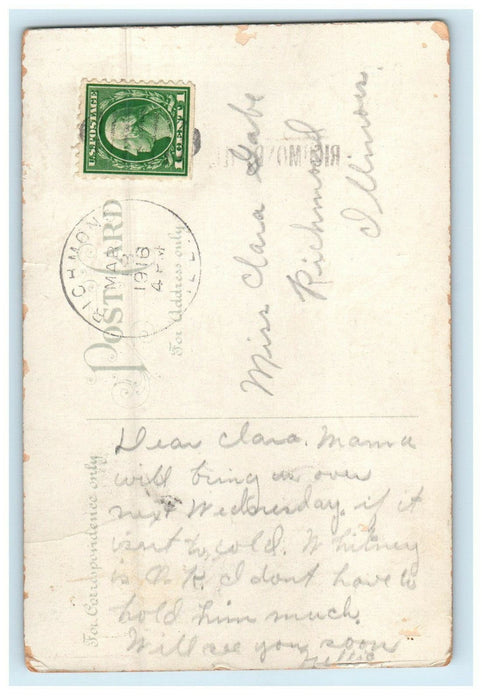 U.S. POSTAGE
1 CENT 1
RICHMOND
MAR
13
1916
4 PM
ILL.
RICHMOND
POST CARD
For Address only
Miss Clara Gabe
Richmond
Illinois.
For Correspondence only
Dear Clara. Mama
will bring us over
next Wednesday. if it
isent to cold. Whitney
is O.K. I dont have to
hold him much.
Will see you soon
Nellie